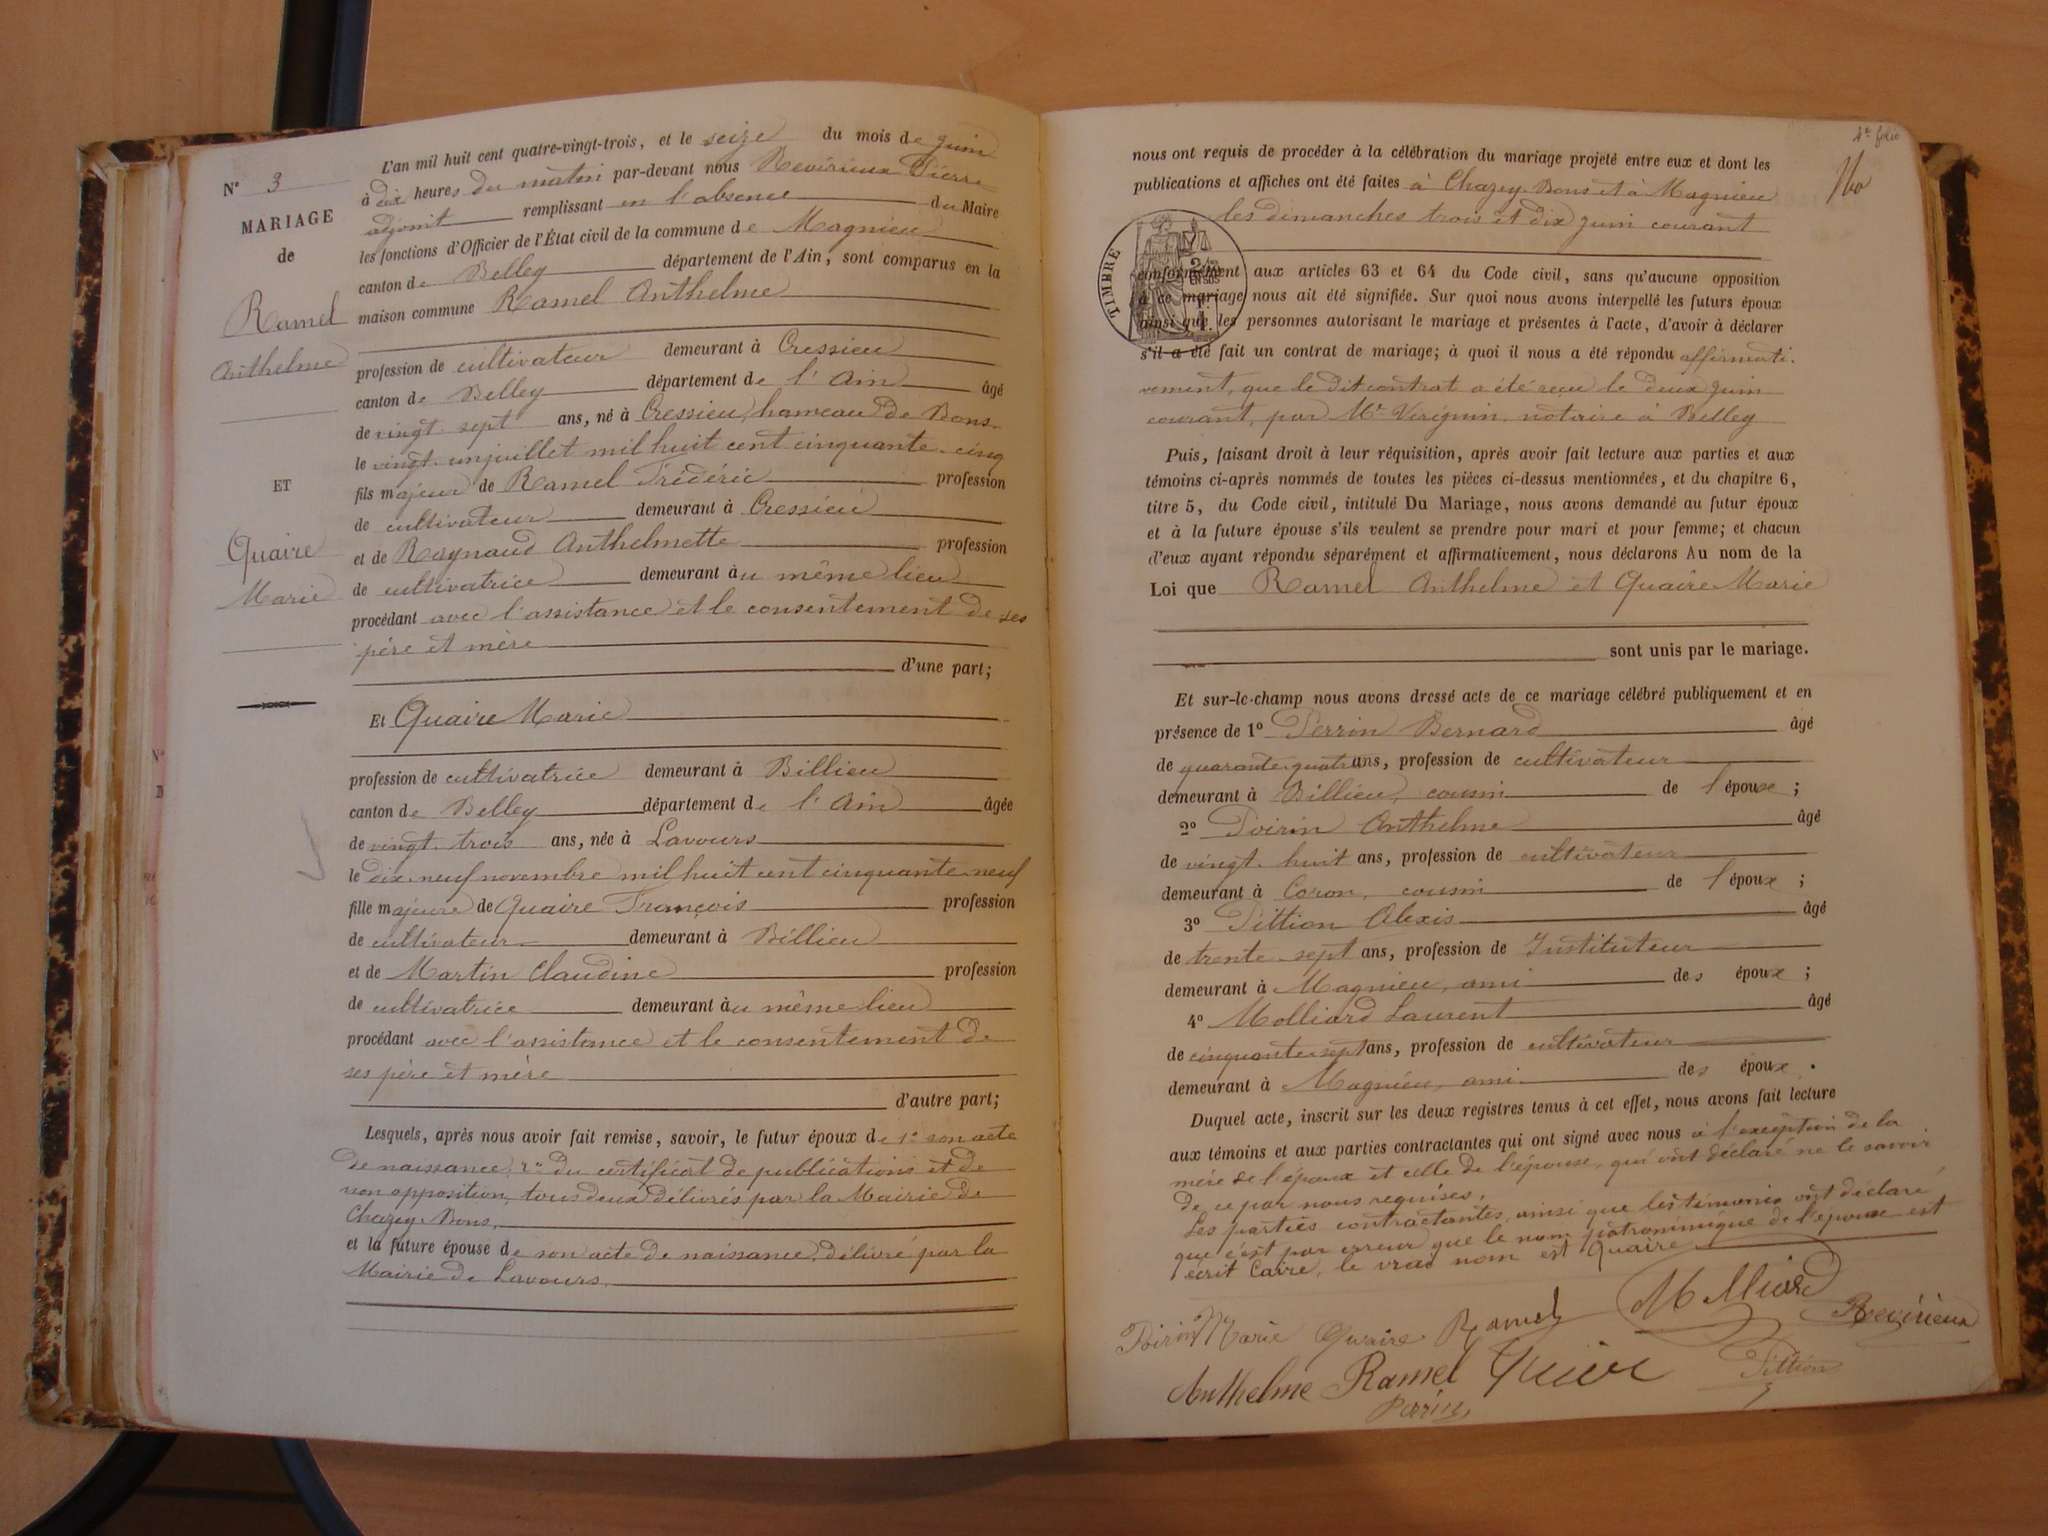 N° 3
MARIAGE
de
Ramel
Anthelme
ET
Quaire
Marie
L'an mil huit cent quatre-vingt-trois, et le seize du mois de juin
à dix heures du matin par-devant nous Revérieux Pierre
adjoint remplissant en l'absence du Maire
les fonctions d'Officier de l'État civil de la commune de Magnieu
canton de Belley département de l'Ain, sont comparus en la
maison commune Ramel Anthelme
profession de cultivateur demeurant à Cressieu
canton de Belley département de l'Ain âgé
de vingt-sept ans, né à Cressieu, hameau de Bons
le vingt-un juillet mil huit cent cinquante-cinq
fils majeur de Ramel Frédéric profession
de cultivateur demeurant à Cressieu
et de Raynaud Anthelmette profession
de cultivatrice demeurant au même lieu
procédant avec l'assistance et le consentement de ses
père et mère
d'une part;
Et Quaire Marie
profession de cultivatrice demeurant à Billieu
canton de Belley département de l'Ain âgée
de vingt-trois ans, née à Lavours
le dix-neuf novembre mil huit cent cinquante-neuf
fille majeure de Quaire François profession
de cultivateur demeurant à Billieu
et de Martin Claudine profession
de cultivatrice demeurant au même lieu
procédant avec l'assistance et le consentement de
ses père et mère
d'autre part;
Lesquels, après nous avoir fait remise, savoir, le futur époux de 1° son acte
de naissance, 2° du certificat de publications et de
non opposition, tous deux délivrés par la Mairie de
Chazey-Bons,
et la future épouse de son acte de naissance, délivré par la
Mairie de Lavours.
4e folio
nous ont requis de procéder à la célébration du mariage projeté entre eux et dont les
publications et affiches ont été faites à Chazey-Bons et à Magnieu
les dimanches trois et dix juin courant
TIMBRE
conformément aux articles 63 et 64 du Code civil, sans qu'aucune opposition
à ce mariage nous ait été signifiée. Sur quoi nous avons interpellé les futurs époux
ainsi que les personnes autorisant le mariage et présentes à l'acte, d'avoir à déclarer
s'il a été fait un contrat de mariage; à quoi il nous a été répondu affirmati-
vement, que le dit contrat a été reçu le deux juin
courant, par Me Veriguin, notaire à Belley
Puis, faisant droit à leur réquisition, après avoir fait lecture aux parties et aux
témoins ci-après nommés de toutes les pièces ci-dessus mentionnées, et du chapitre 6,
titre 5, du Code civil, intitulé Du Mariage, nous avons demandé au futur époux
et à la future épouse s'ils veulent se prendre pour mari et pour femme; et chacun
d'eux ayant répondu séparément et affirmativement, nous déclarons Au nom de la
Loi que Ramel Anthelme et Quaire Marie
sont unis par le mariage.
Et sur-le-champ nous avons dressé acte de ce mariage célébré publiquement et en
présence de 1° Perrin Bernard âgé
de quarante-quatre ans, profession de cultivateur
demeurant à Billieu, cousin de l'épouse;
2° Poirin Anthelme âgé
de vingt-huit ans, profession de cultivateur
demeurant à Coron, cousin de l'époux;
3° Pittion Alexis âgé
de trente-sept ans, profession de Instituteur
demeurant à Magnieu, ami des époux;
4° Molliard Laurent âgé
de cinquante-sept ans, profession de cultivateur
demeurant à Magnieu, ami des époux.
Duquel acte, inscrit sur les deux registres tenus à cet effet, nous avons fait lecture
aux témoins et aux parties contractantes qui ont signé avec nous à l'exception de la
mère de l'époux et celle de l'épouse, qui ont déclaré ne le savoir
de ce par nous requises.
Les parties contractantes, ainsi que les témoins ont déclaré
que c'est par erreur que le nom patronimique de l'épouse est
écrit Caire, le vrai nom est Quaire
Poirin Marie Quaire Ramel Molliard Revérieux
Anthelme Ramel Pittion
Perrin